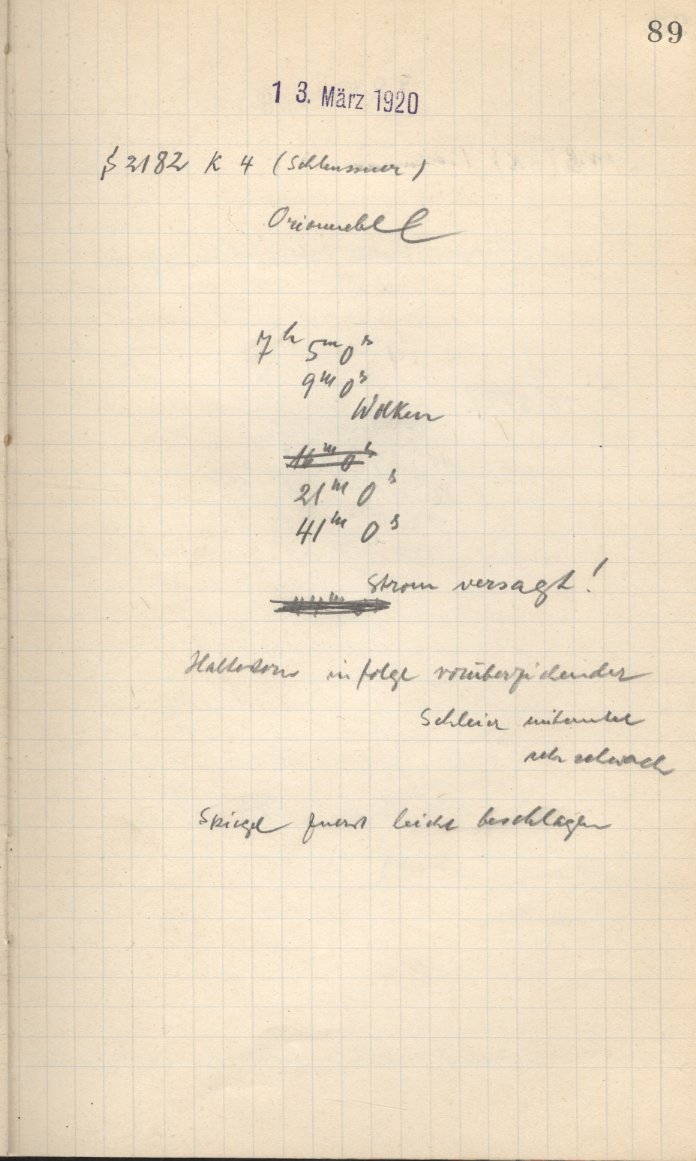 89
13. März 1920
2182 K 4 (Schleussner)
Orionnebel
7h 5m 0s
9m 0s
Wolken
16m 0s
21m 0s
41m 0s
Strom versagt!
Haltestern infolge vorüberziehender
Schleier mitunter
sehr schwach
Spiegel zuerst leicht beschlagen